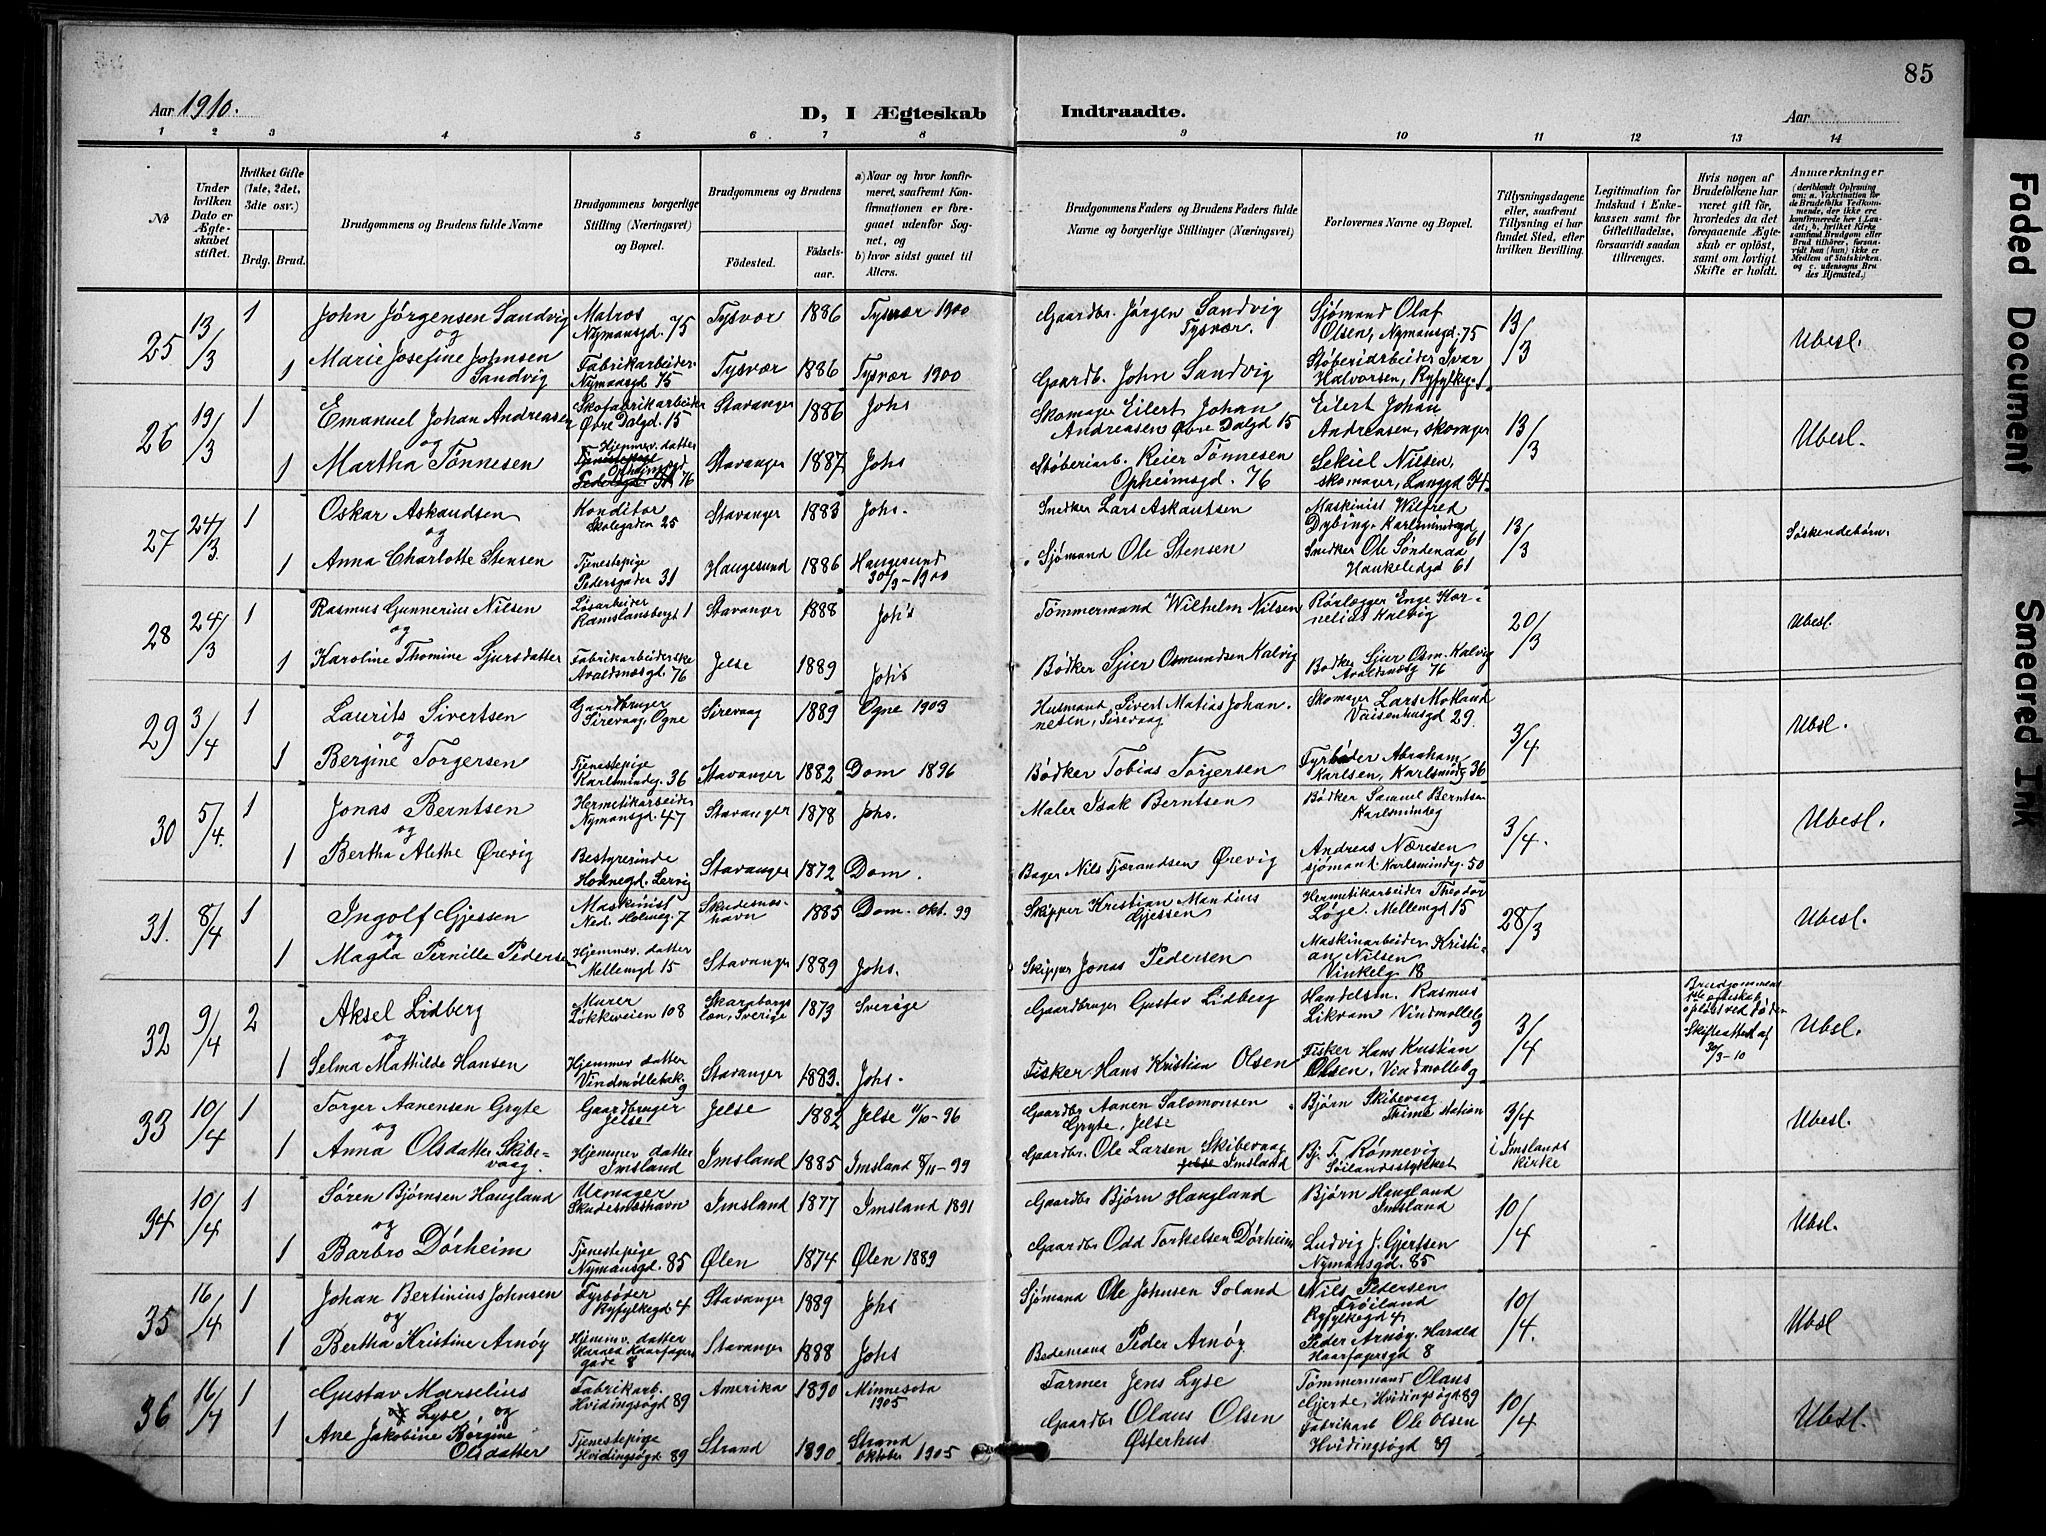 85
Aar 1910.
D, I Ægteskab Indtraadte.
Aar
1 2 3 4 5 6 7 8 9 10 11 12 13 14
№
Under hvilken Dato er Ægteskabet stiftet.
Hvilket Gifte (1ste, 2det, 3die osv.)
Brdg. Brud.
Brudgommens og Brudens fulde Navne
Brudgommens borgerlige Stilling (Næringsvei) og Bopæl.
Brudgommens og Brudens
Födested. Födselsaar.
a) Naar og hvor konfirmeret, saafremt Konfirmationen er foregaaet udenfor Sognet, og
b) hvor sidst gaaet til Alters.
Brudgommens Faders og Brudens Faders fulde Navne og borgerlige Stillinger (Næringsvei)
Forlovernes Navne og Bopæl.
Tillysningsdagene eller, saafremt Tillysning ei har fundet Sted, efter hvilken Bevilling.
Legitimation for Indskud i Enkekassen samt for Giftetilladelse, forsaavidt saadan tiltrænges.
Hvis nogen af Brudefolkene har været gift før, hvorledes da det foregaaende Ægteskab er oplöst, samt om lovligt Skifte er holdt.
Anmærkninger
(deriblandt Oplysning om: a. Vakcination for Brudefolks Vedkommende, der ikke ere konfirmerede her i Landet; b. hvilket Kirkesamfund Brudgom eller Brud tilhörer, forsaavidt han (hun) ikke er Medlem af Statskirken, og c. udensogns Brudes Hjemsted.)
25 13/3 1 John Jørgensen Sandvig Matros Nymansgd. 75 Tysvær 1886 Tysvær 1900 Gaardbr. Jørgen Sandvig Tysvær. Sjømand Olaf Olsen, Nymansgd. 75 13/3 Ubesl.
og
1 Marie Josefine Johnsen Sandvig Fabrikarbeider Nymansgd 75 Tysvær 1886 Tysvær 1900 Gaardb. John Sandvig Støberiarbeider Ivar Halvorsen, Ryfylkeg. 1
26 19/3 1 Emanuel Johan Andreasen Skofabrikarbeider Øbre Dalgd. 15 Stavanger 1886 Johs Skomager Eilert Johan Andreasen Øbre Dalgd 15 Eilert Johan Andreasen, skomager 13/3 Ubesl.
og
1 Martha Tønnesen Hjemmev. datter Tjenestepige Opheimsgd 76 Stavanger 1887 Johs Støberiarb. Reier Tønnesen Opheimsgd. 76 Sekiel Nilsen, skomager, Langgd 34.
27 24/3 1 Oskar Askautsen Konditor Skolegaden 25 Stavanger 1883 Johs. Snedker Lars Askautsen Maskinist Wilfred Dybing, Karlsmindegd 61 13/3 Søskendebørn.
og
1 Anna Charlotte Stensen Tjenestepige Pedersgaden 31 Haugesund 1886 Haugesund 30/9-1900 Sjømand Ole Stensen Snedker Ole Søndenaa Haukeliedgd 61
28 24/3 1 Rasmus Gunnerius Nilsen Løsarbeider Ramslandsbergt 1 Stavanger 1888 Joh's Tømmermand Wilhelm Nilsen Rørlægger Enge Kornelius Kalvig 20/3 Ubesl.
og
1 Karoline Thomine Sjursdatter Fabrikarbeiderske Avaldsnæsgd. 76 Jelse 1889 Joh's Bødker Sjur Osmundsen Kalvig Bødker Sjur Osm. Kalvig Avaldsnæsg 76
29 3/4 1 Laurits Sivertsen Gaardbruger Sirevaag, Ogne Sirevaag 1889 Ogne 1903 Husmand Sivert Matias Johannesen, Sirevaag Skomager Lars Motland Vaisenhusgd 29. 3/4 Ubsl.
og
1 Bergine Torgersen Tjenestepige Karlsmindeg. 36 Stavanger 1882 Dom 1896 Bødker Tobias Torgersen Fyrbøder Abraham Karlsen, Karlsmindeg 36
30 5/4. 1 Jonas Berntsen Hermetikarbeider Nymansgd. 47 Stavanger 1878 Johs. Maler Isak Berntsen Bødker Samuel Berntsen Karlsmindeg 3/4. Ubesl.
og
1 Bertha Alethe Ørevig Bestyrerinde Hodnegd. Lervig Stavanger 1872 Dom. Bager Nils Tjerandsen Ørevig Andreas Næresen sjømand. Karlsmindeg. 50
31. 8/4 1 Ingolf Gjessen Maskinist Ned. Holmeg. 7 Skudesneshavn 1885 Dom. okt. 99 Skipper Kristian Mandius Gjessen Hermetikarbeider Theodor Løge. Mellemgd 15 28/3 Ubesl.
og
1 Magda Pernille Pedersen Hjemmev. datter Mellemgd 15 Stavanger 1889 Johs. Skipper Jonas Pedersen Maskinarbeider Kristian Nilsen Vinkelg 18
32 9/4 2 Aksel Lidberg Murer Løkkeveien 108 Skaraborgs læn, Sverige 1873 Sverige Gaardbruger Gustav Lidberg Handelsm. Rasmus Likvam Vindmølleb. 9 3/4 Brudgommens 1ste egteskab opløst ved døden Skifteattest af 30/3-10 Ubsl.
og
1 Selma Mathilde Hansen Hjemmev. datter Vindmøllebak. 9 Stavanger 1883. Johs. Fisker Hans Kristian Olsen Fisker Hans Kristian Olsen, Vindmølleb 9
33 10/4 1 Torger Aanensen Gryte Gaardbruger Jelse Jelse 1882 Jelse 4/10-96 Gaardbr Aanen Salomonsen Gryte, Jelse Bjørn Skibevaag Time station 3/4 i Imslands kirke Ubesl.
og
1 Anna Olsdatter Skibevaag. Hjemmev datter Imsland Imsland 1885 Imsland 8/11-99 Gaardbr. Ole Larsen Skibevaag Jelse Imsland Bj. T. Rønnevig Søilandsstykket
34 10/4 1 Søren Bjørnsen Haugland Urmager Skudesneshavn Imsland 1877 Imsland 1891 Gaardbr Bjørn Haugland Bjørn Haugland Imsland 10/4 Ubsl.
og
1 Barbro Dørheim Tjenestepige Nymansgd. 85 Ølen 1874 Ølen 1889 Gaardbr Odd Torkelsen Dørheim Ludvig J. Gjertsen Nymansgd. 85
35 16/4 1 Johan Bertinius Johnsen Fyrbøder Ryfylkegd 4 Stavanger 1889 Johs Sjømand Ole Johnsen Soland Nils Pedersen Frøiland Ryfylkegd 4 10/4. Ubsl
og
1 Bertha Kristine Arnøy Hjemmev. datter Harald Haarfagersgade 8 Stavanger 1888 Johs Bedemand Peder Arnøy Peder Arnøy, Harald Haarfagersgd 8
36 16/4 1 Gustav Marselius Lyse og Fabrikarb. Hvidingsøgd 89 Amerika 1890 Minnesota 1905 Farmer Jens Lyse Tømmermand Olaus Gjerde, Hvidingsøgd. 89 10/4 Ubsl.
1 Ane Jakobine Bergine Olsdatter Tjenestepige Hvidingsøgd. 89 Strand 1890 Strand Oktober 1905 Gaardbr Olaus Olsen Østerhus Fabrikarb Ole Olsen Hvidingsøgd 89
Faded Document
Smeared Ink